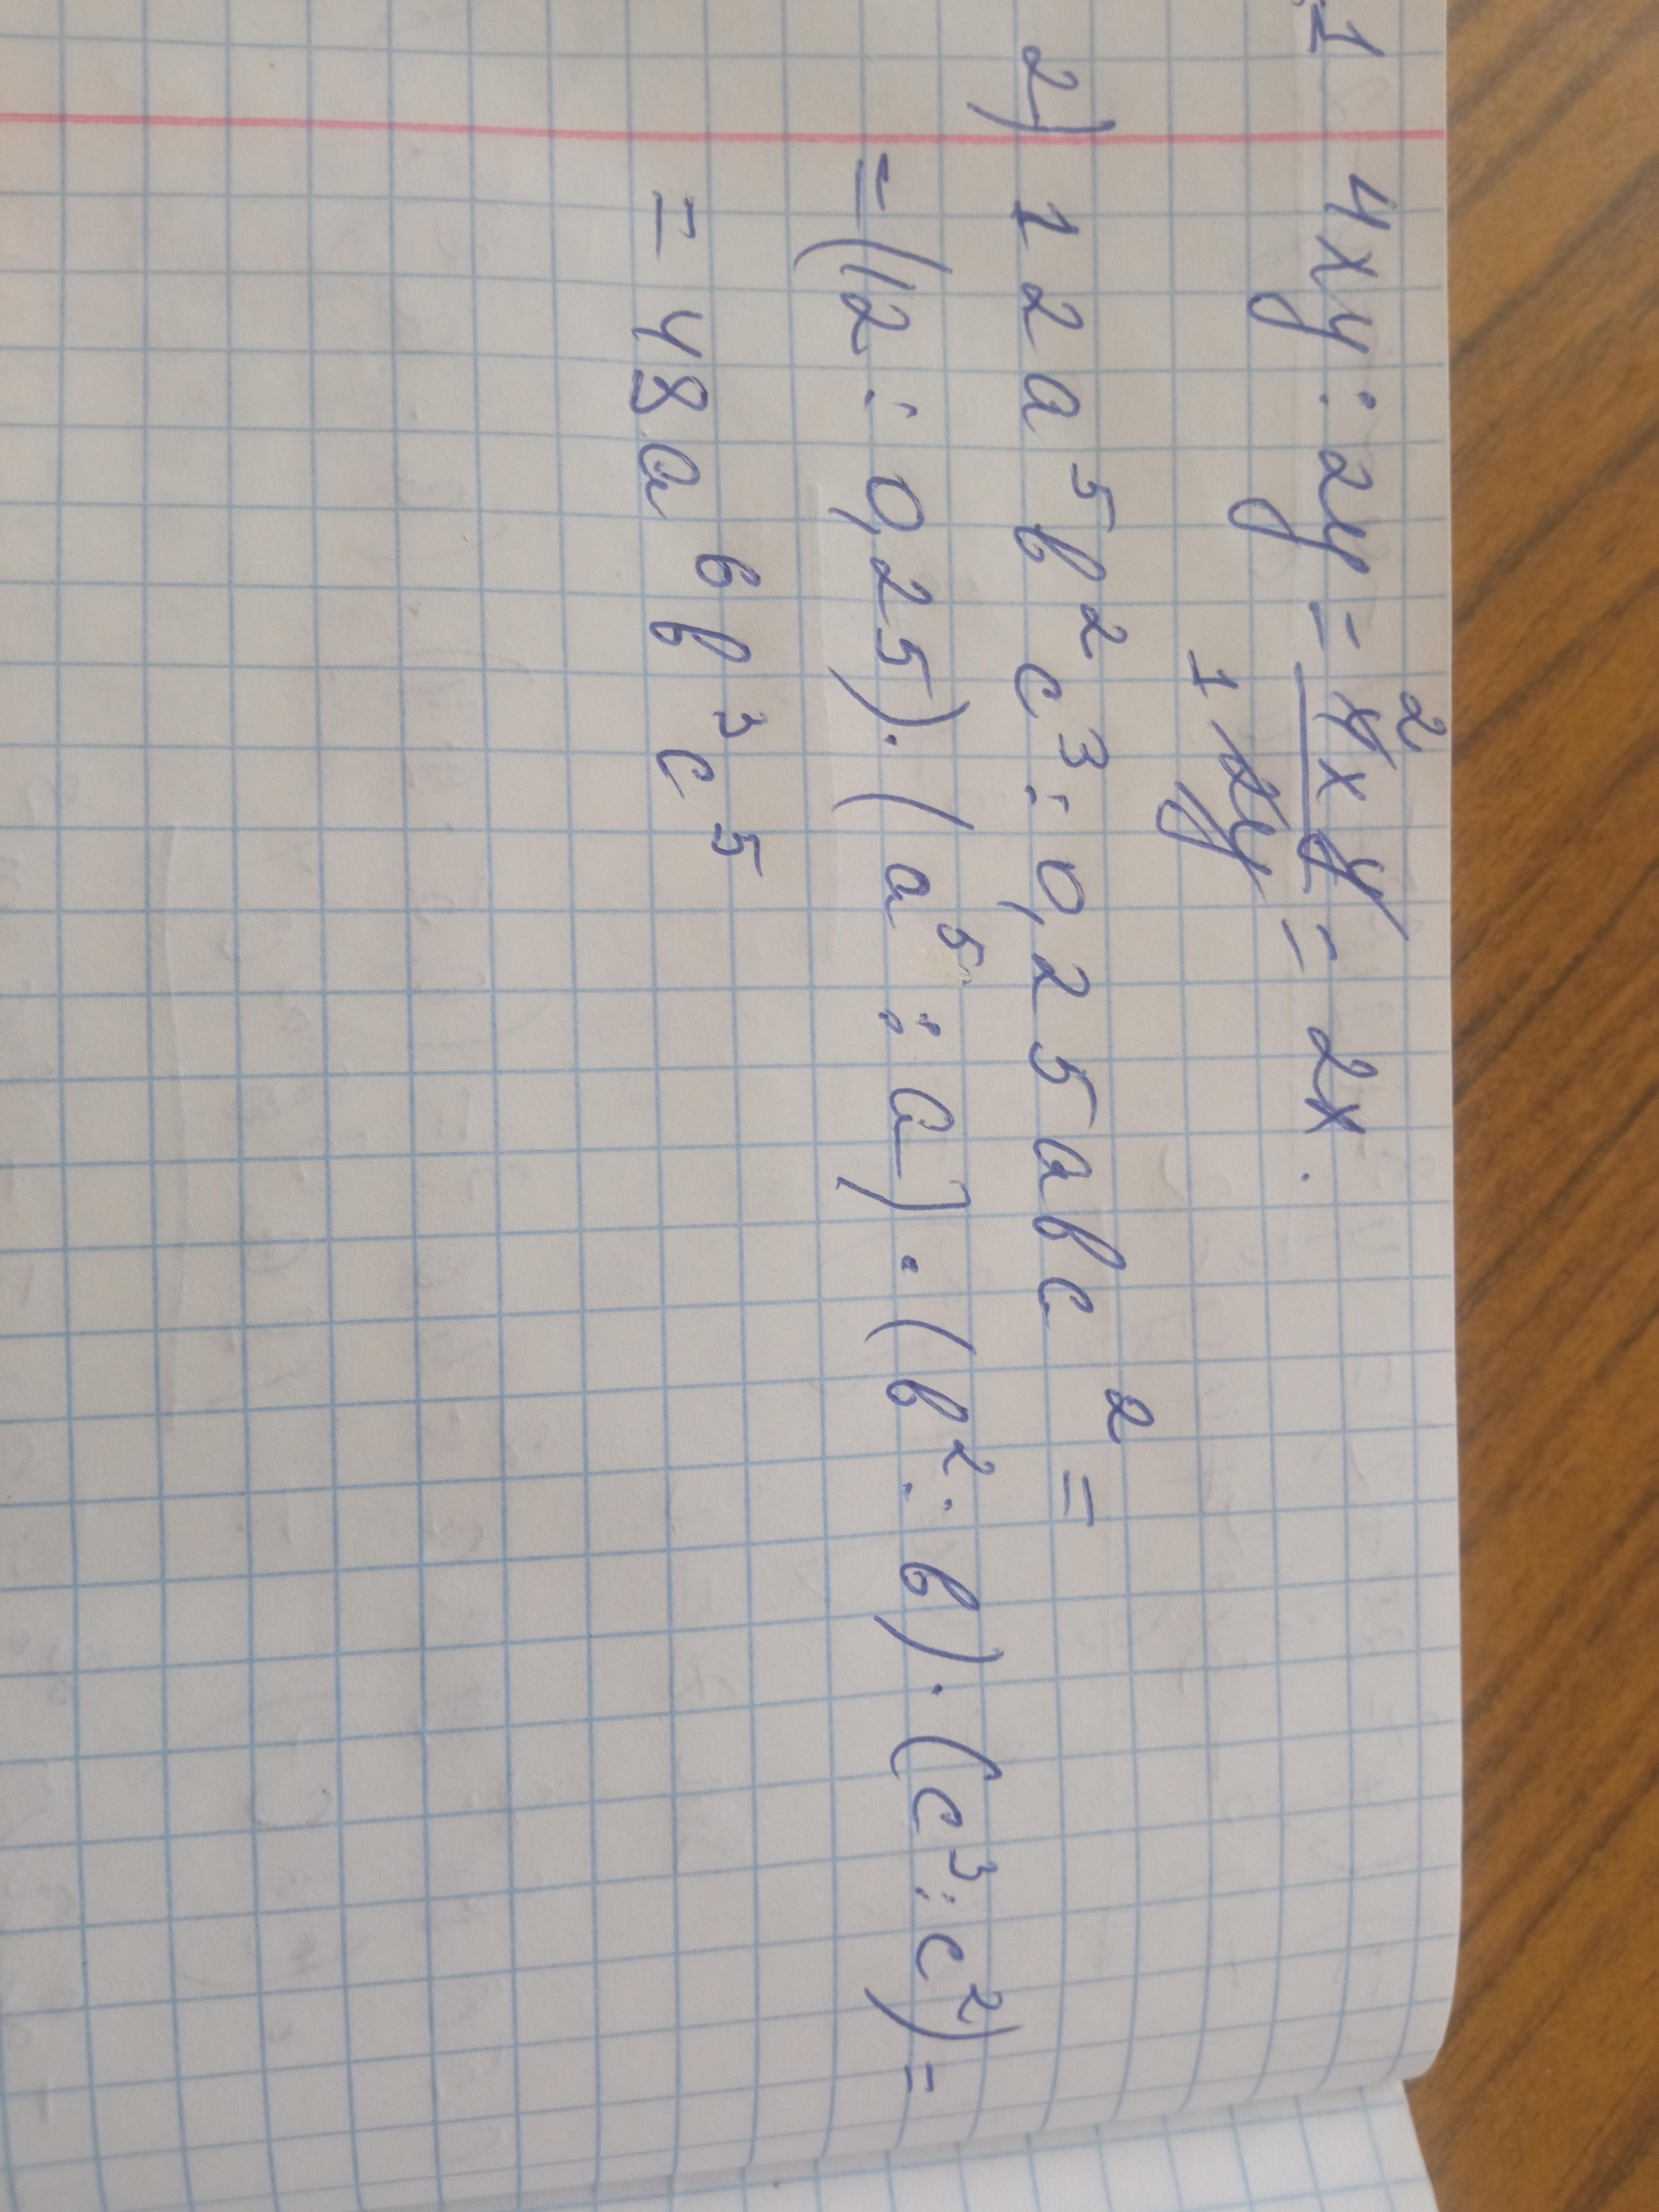 1 4xy : 2y = 4xy = 2x.
2
1 2y
2) 12a⁵b²c³ : 0,25abc² =
= (12 : 0,25) · (a⁵ : a) · (b² : b) · (c³ : c²) =
= 48a⁶b³c⁵